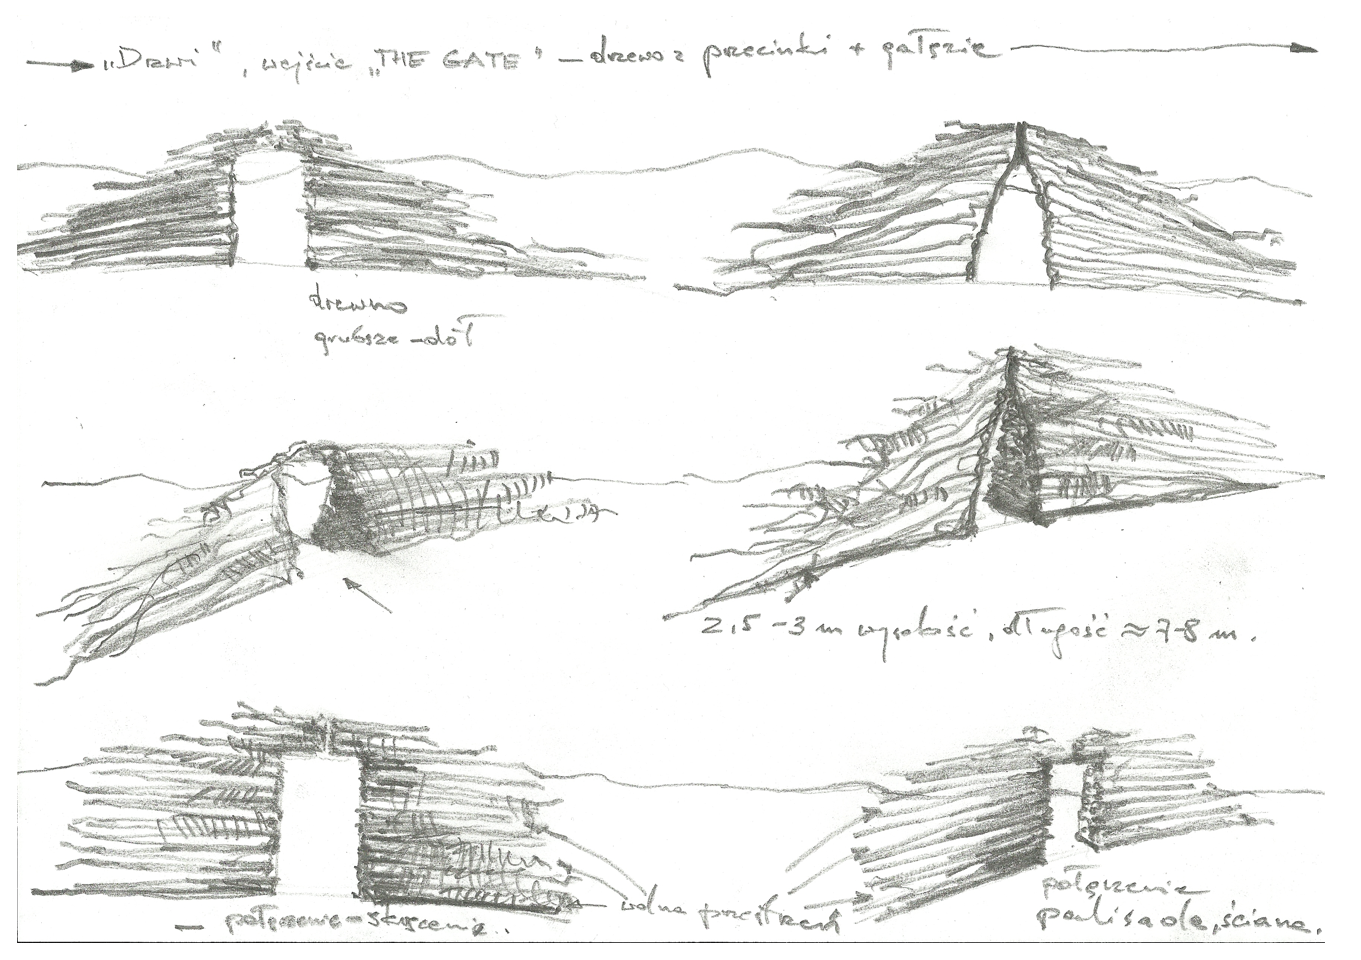 „Drzwi", wejście „THE GATE" – drewno z przecinki + gałęzie
drewno
grubsze – dół
2,5 – 3 m wysokość, długość ≈ 7-8 m.
– połączenie – skręcenie..
wolna przestrzeń
połączenie
palisada, ściana.